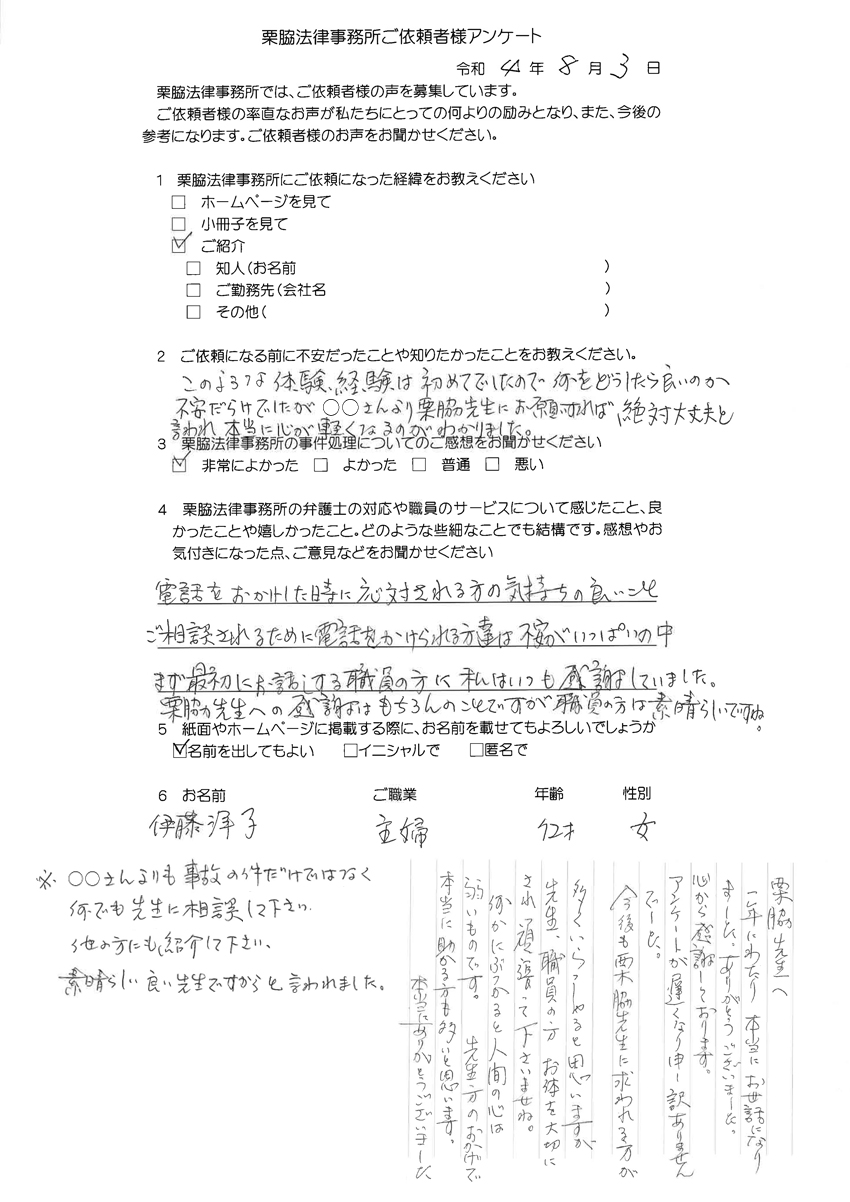 栗脇法律事務所ご依頼者様アンケート
令和 4 年 8 月 3 日
栗脇法律事務所では、ご依頼者様の声を募集しています。
ご依頼者様の率直なお声が私たちにとっての何よりの励みとなり、また、今後の
参考になります。ご依頼者様のお声をお聞かせください。
1 栗脇法律事務所にご依頼になった経緯をお教えください
□ ホームページを見て
□ 小冊子を見て
☑ ご紹介
□ 知人(お名前 )
□ ご勤務先(会社名 )
□ その他( )
2 ご依頼になる前に不安だったことや知りたかったことをお教えください。
このような体験、経験は初めてでしたので何をどうしたら良いのか
不安だらけでしたが○○さんより栗脇先生にお願いすれば絶対大丈夫と
言われ本当に心が軽くなるのがわかりました。
3 栗脇法律事務所の事件処理についてのご感想をお聞かせください
☑ 非常によかった □ よかった □ 普通 □ 悪い
4 栗脇法律事務所の弁護士の対応や職員のサービスについて感じたこと、良
かったことや嬉しかったこと。どのような些細なことでも結構です。感想やお
気付きになった点、ご意見などをお聞かせください
電話をおかけした時に応対される方の気持ちの良いこと
ご相談されるために電話をかけられる方達は不安がいっぱいの中
まず最初にお話しする職員の方に私はいつも感謝していました。
栗脇先生への感謝はもちろんのことですが職員の方は素晴らしいですね。
5 紙面やホームページに掲載する際に、お名前を載せてもよろしいでしょうか
☑名前を出してもよい □イニシャルで □匿名で
6 お名前 ご職業 年齢 性別
伊藤洋子 主婦 女
※ ○○さんよりも事故の件だけではなく
何でも先生に相談して下さい。
他の方にも紹介して下さい、
素晴らしい良い先生ですからと言われました。
栗脇先生へ
二年にわたり 本当にお世話になり
ました。ありがとうございました。
心から感謝しております。
アンケートが遅くなり申し訳ありません
でした。
今後も栗脇先生に求われる方が
多くいらっしゃると思いますが
先生、職員の方 お体を大切に
され頑張って下さいませね。
何かにぶつかると人間の心は
弱いものです。 先生方のおかげで
本当に助かる方も多いと思います。
本当にありがとうございました